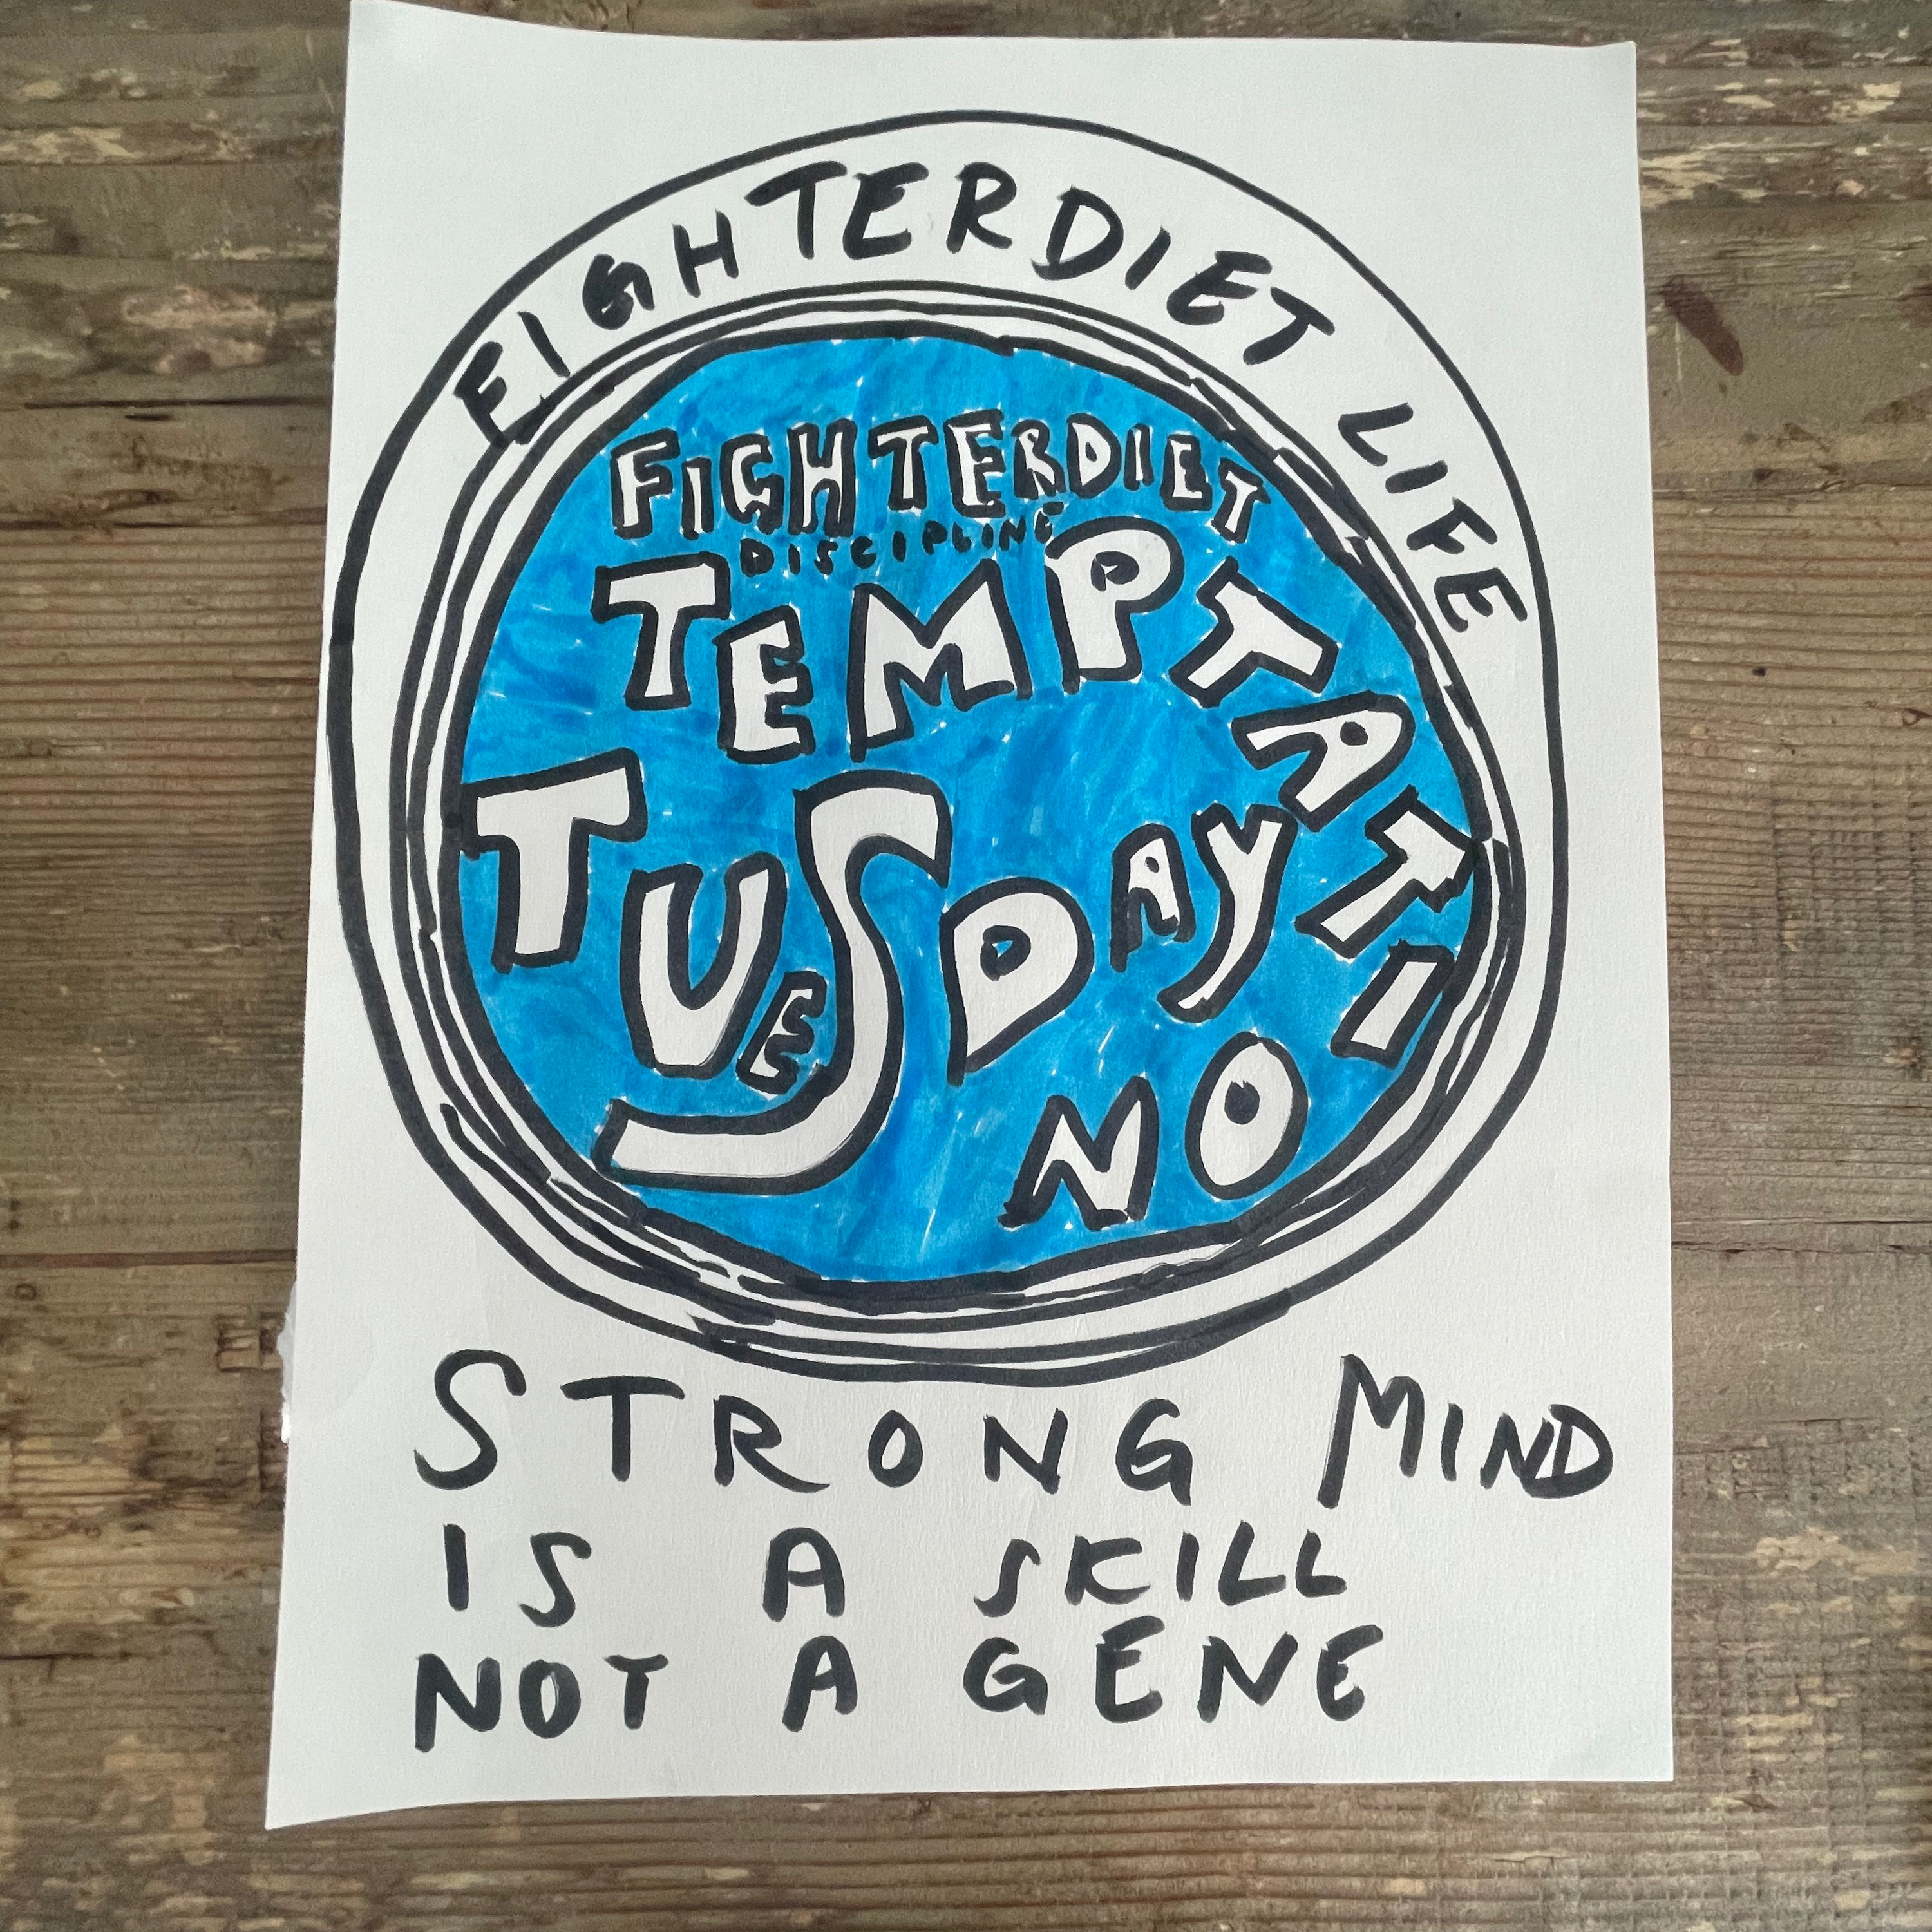 FIGHTERDIET LIFE
FIGHTERDIET
DISCIPLINE
TEMPTATI
NO
TUESDAY
STRONG MIND
IS A SKILL
NOT A GENE